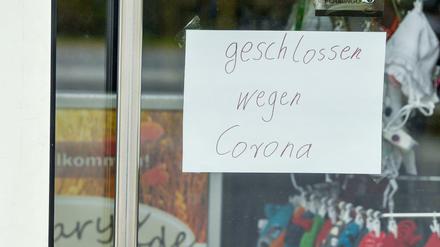 geschlossen
wegen
Corona
lkommen!
ary
de